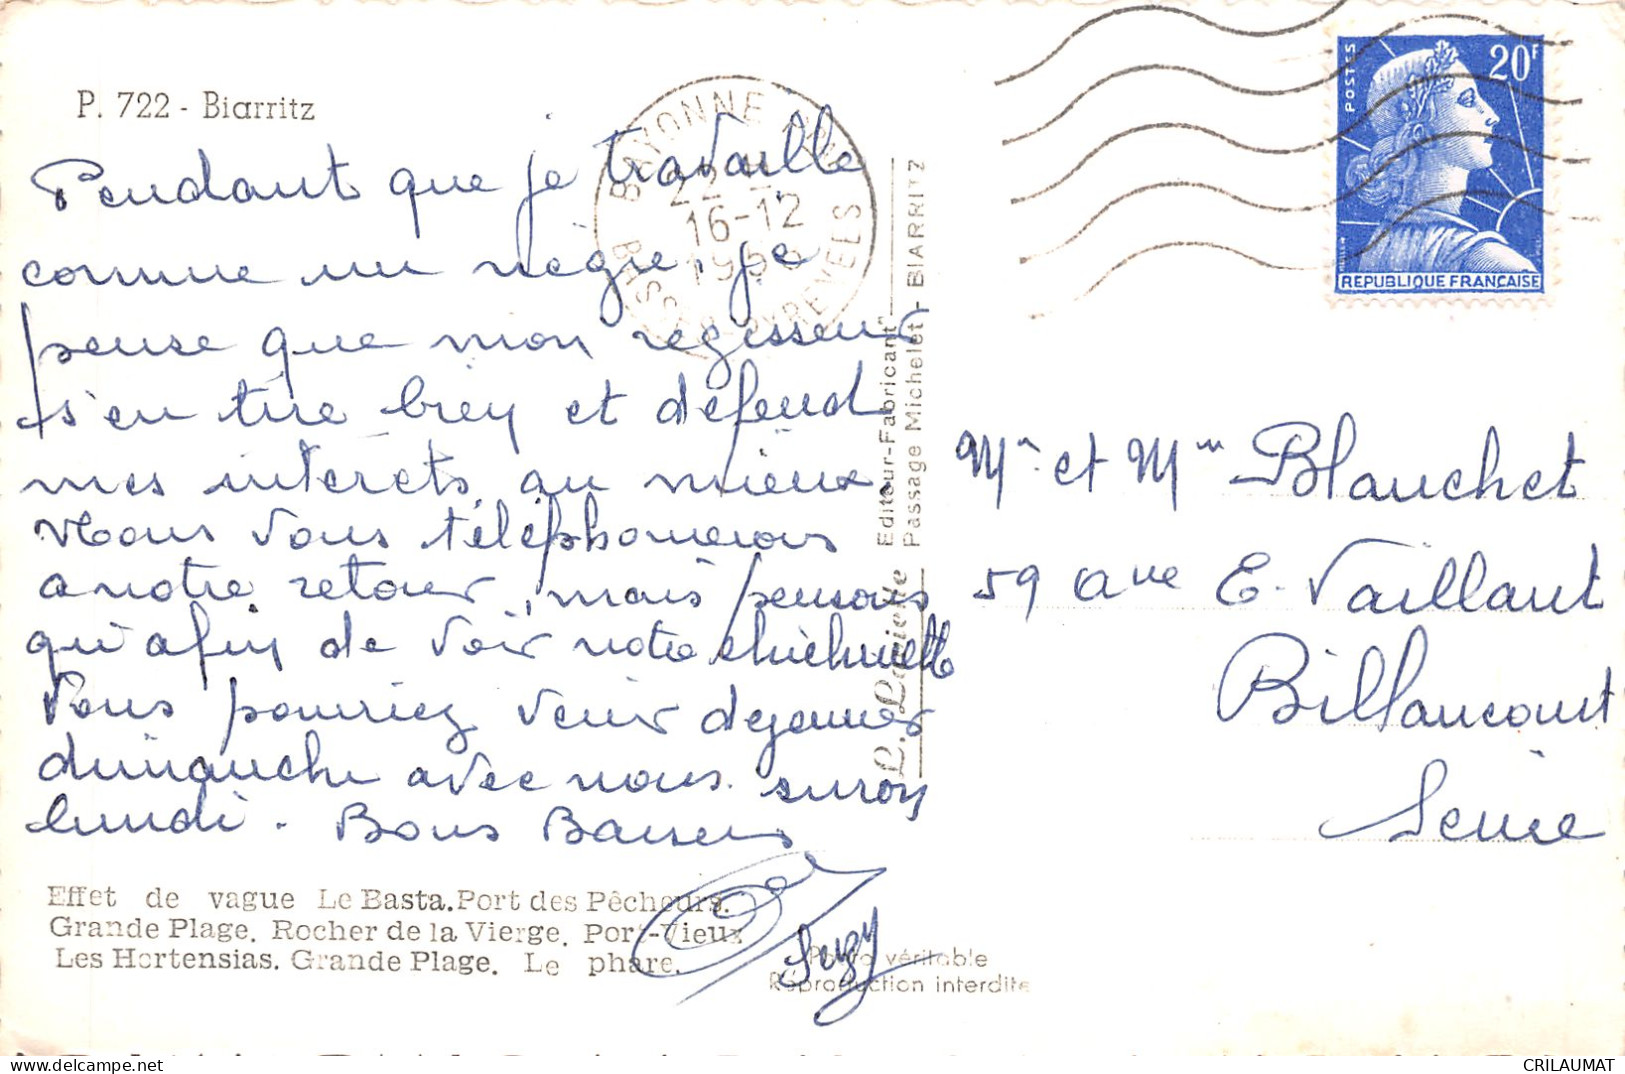 P. 722 - Biarritz
Pendant que je travaille
comme un nègre, je
pense que mon regisseur
s'en tire bien et defend
mes interets au mieux
Nous vous téléphonerons
a notre retour, mais pensons
qu'afin de voir notre
Vous pourriez venir dejeuner
dimanche avec nous. suron
lundi. Bons Baisers
Suzy
Effet de vague Le Basta. Port des Pêcheurs.
Grande Plage. Rocher de la Vierge. Port-Vieux
Les Hortensias. Grande Plage. Le phare.
Photo véritable
Réproduction interdite
L. Editeur-Fabricant
Passage Michelet - BIARRITZ
BAYONNE
16-12
BASSES-PYRENEES
POSTES
20F
REPUBLIQUE FRANÇAISE
Mr et Mme Blanchet
59 ave E. Vaillant
Billancourt
Seine
CRILAUMAT